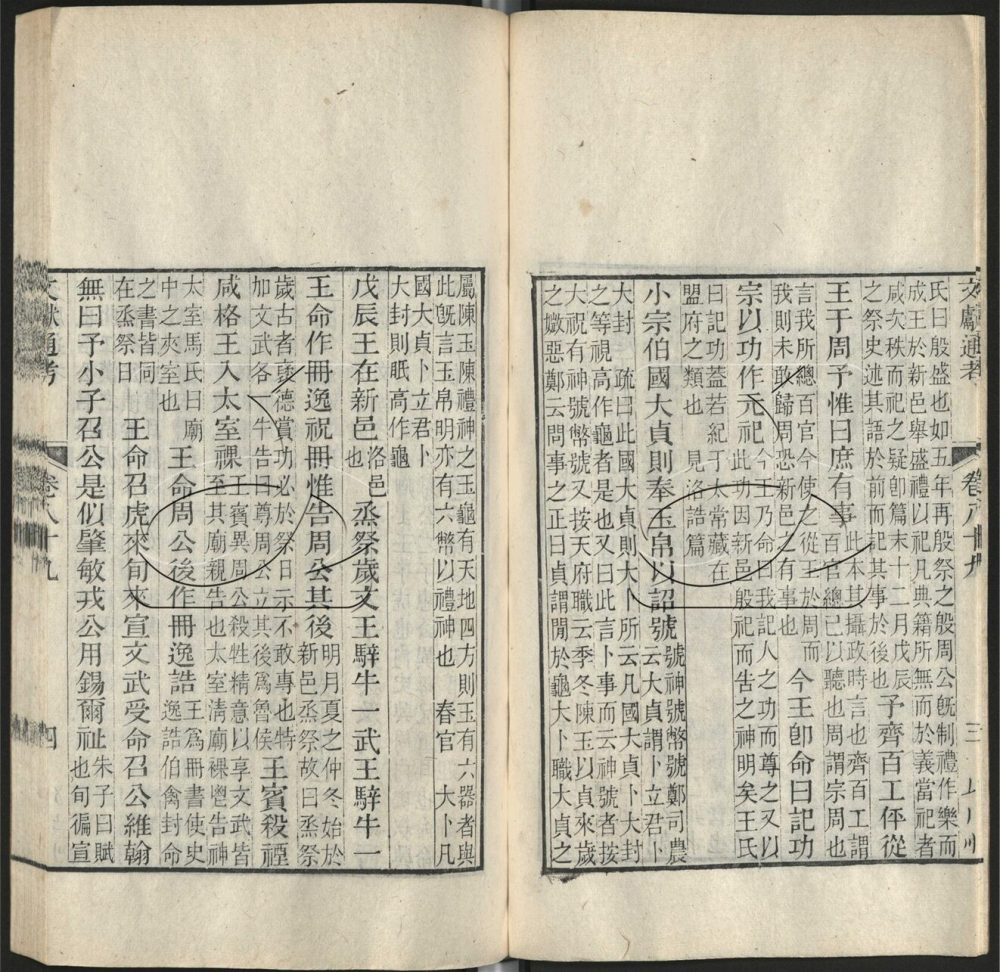 文獻通考　卷八十九　三
氏曰殷盛也如五年再殷祭之殷周公旣制禮作樂而
成王於新邑舉盛禮以祀凡典籍所無而於義當祀者
咸次秩而祀之疑卽篇末十二月戊辰
之祭史述其語於前而記其事於後也
予齊百工伻從
王于周予惟曰庶有事
此本其攝政時言也齊百工謂
百官總已以聽也周謂宗周也
言我所總百官今使之從王於周而
我則未敢歸周恐新邑之有事也
今王卽命曰記功
宗以功作元祀
今王乃命曰我記人之功而尊之又以
此功因新邑殷祀而告之神明矣王氏
曰記功蓋若紀于太常藏在
盟府之類也　見洛誥篇
小宗伯國大貞則奉玉帛以詔號
號神號幣號鄭司農
云大貞謂卜立君卜
大封　疏曰此國大貞則大卜所云凡國大貞卜大封
之等視高作龜者是也又曰此言卜事而云神號者按
大祝有神號幣號又按天府職云季冬陳玉以貞來歲
之媺惡鄭云問事之正曰貞謂問於龜大卜職大貞之
屬陳玉陳禮神之玉龜有天地四方則玉有六器者與
此旣言玉帛明亦有六幣以禮神也　春官　大卜凡
國大貞卜立君卜
大封則眡高作龜
戊辰王在新邑
洛邑
也
烝祭歲文王騂牛一武王騂牛一
王命作冊逸祝冊惟告周公其後
明月夏之仲冬始於
新邑烝祭故曰烝祭
歲古者褒德賞功必於祭日示不敢專也特
加文武各一牛告曰尊周公立其後爲魯侯
王賓殺禋
咸格王入太室祼
王賓異周公殺牲精意以享文武皆
至其廟親告也太室清廟祼鬯告神
太室馬氏曰廟
中之夾室也
王命周公後作冊逸誥
王爲冊書使史
逸誥伯禽封命
之書皆同
在烝祭日
王命召虎來旬來宣文武受命召公維翰
無曰予小子召公是似肇敏戎公用錫爾祉
朱子曰賦
也旬徧宣
文獻通考　卷八十九　四